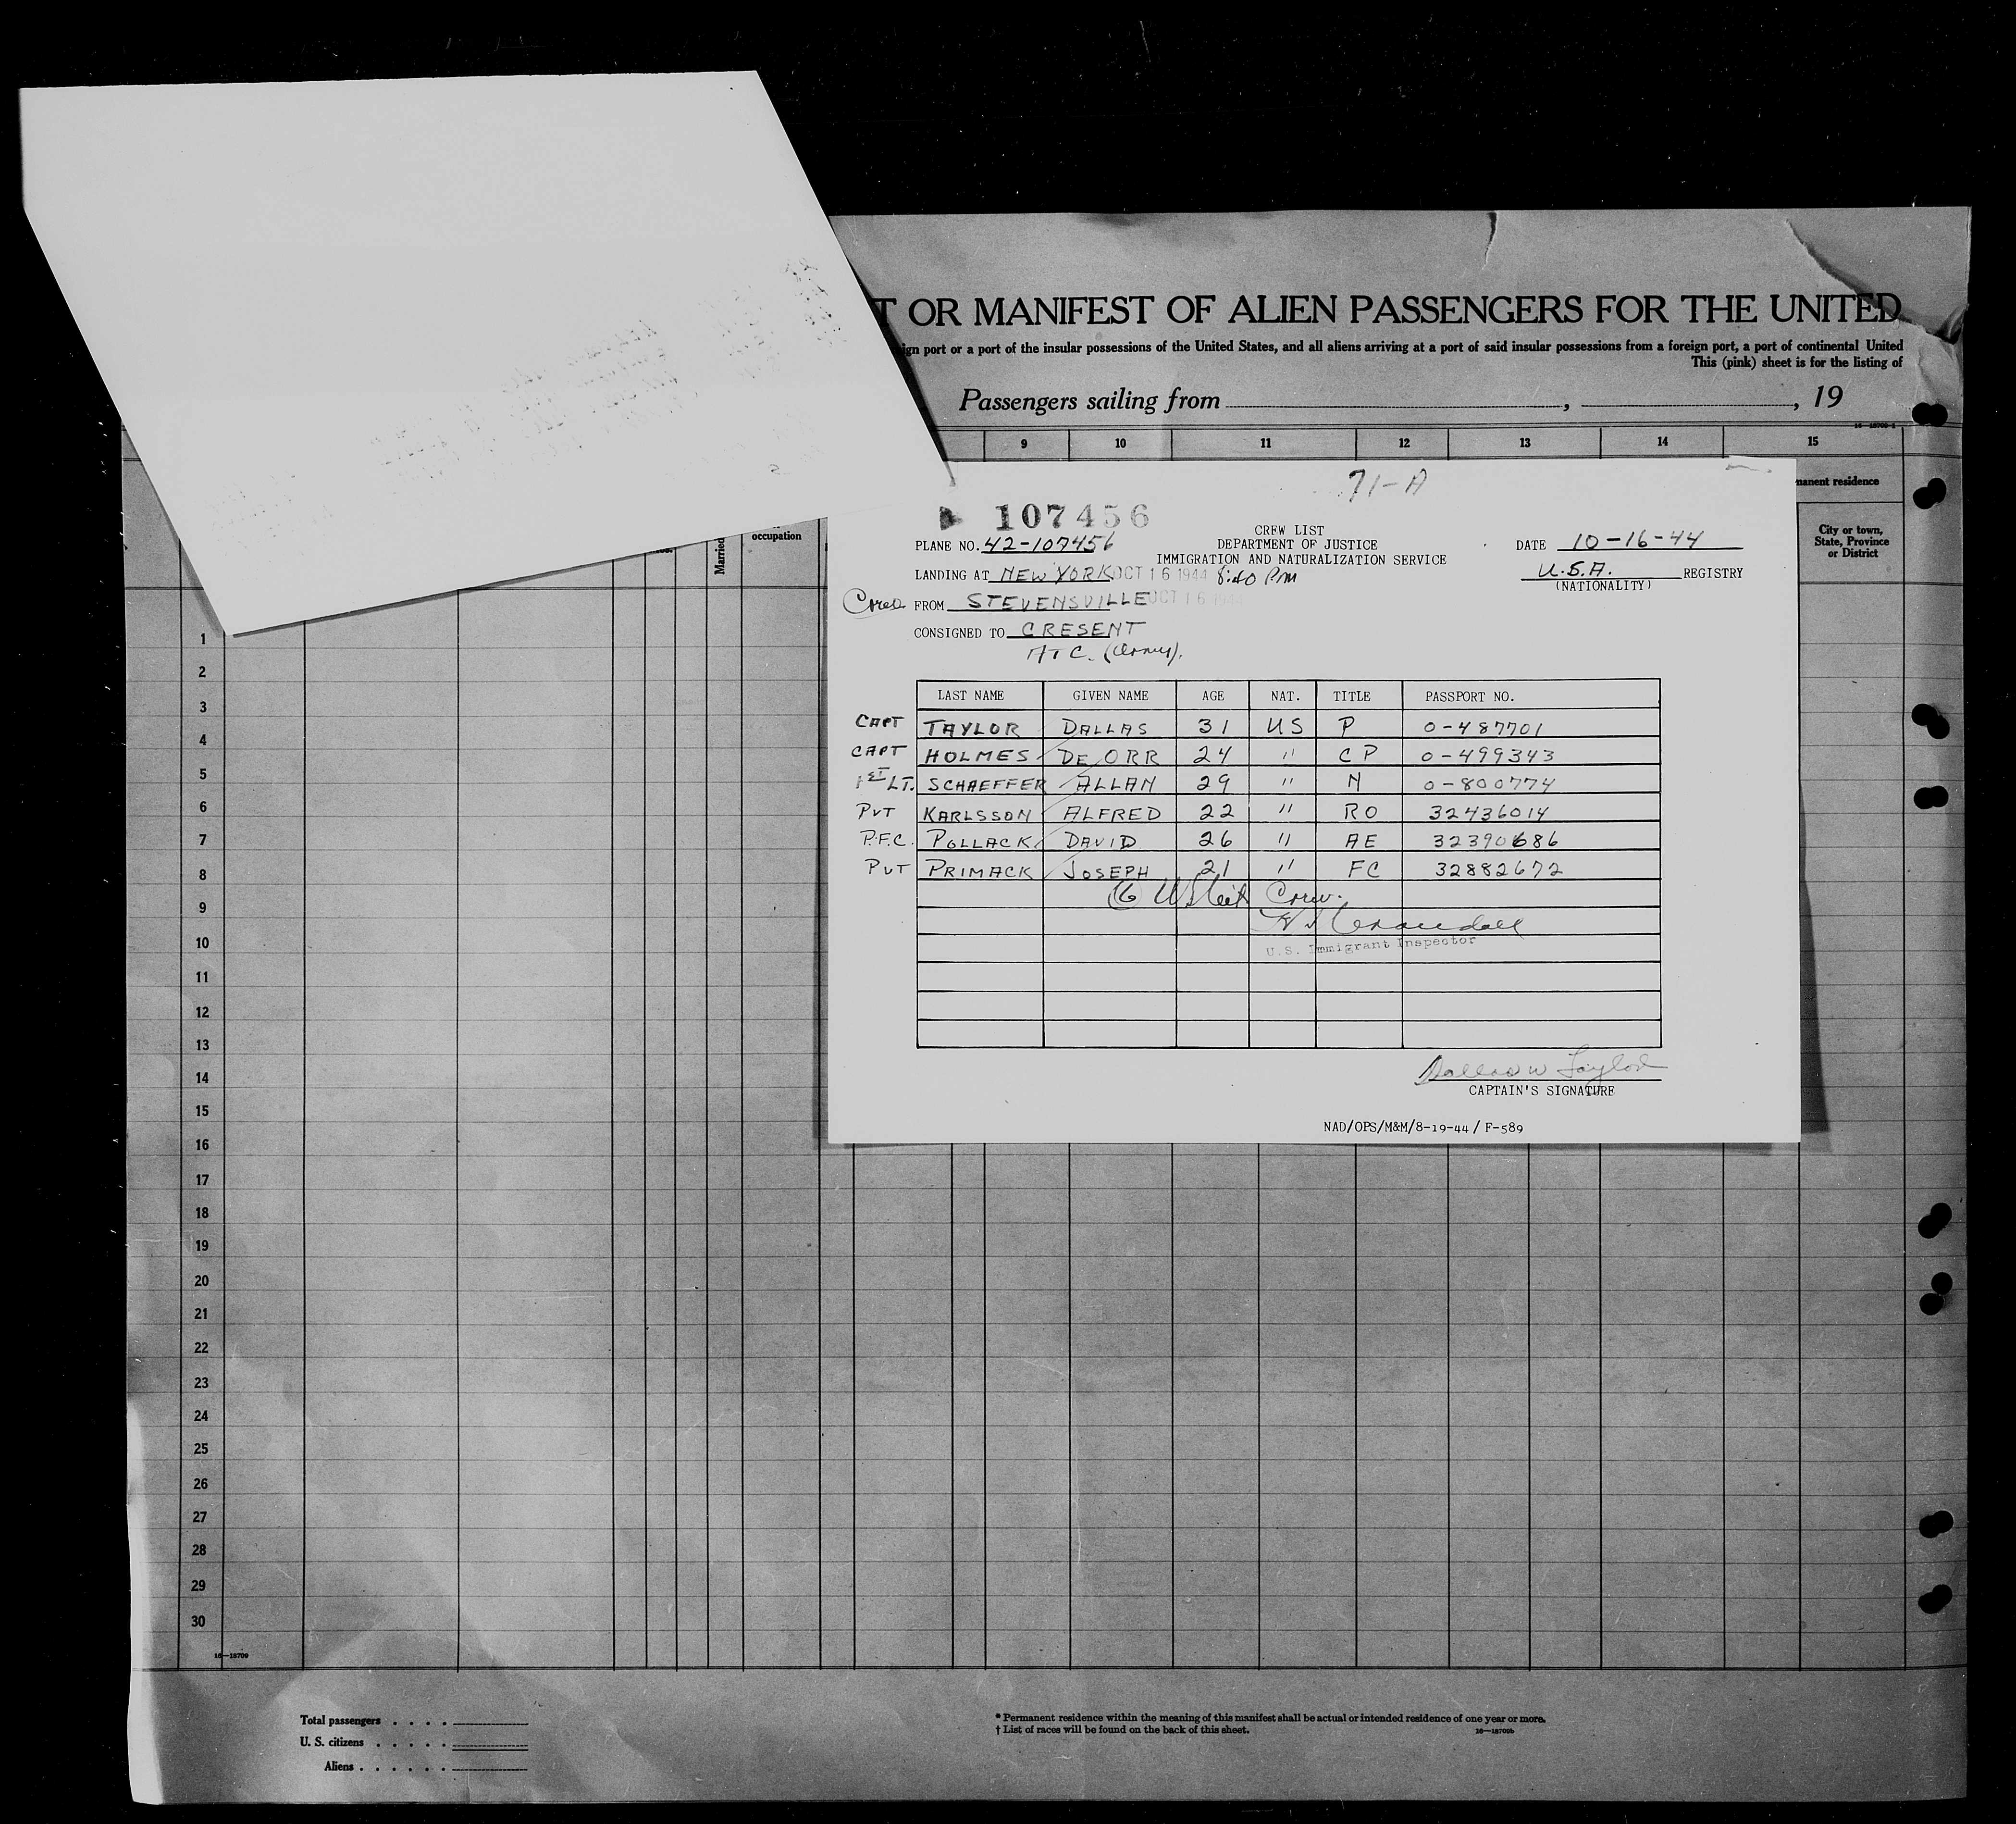 T OR MANIFEST OF ALIEN PASSENGERS FOR THE UNITED
ign port or a port of the insular possessions of the United States, and all aliens arriving at a port of said insular possessions from a foreign port, a port of continental United
This (pink) sheet is for the listing of
Passengers sailing from , , 19
9 10 11 12 13 14 15
manent residence
City or town,
State, Province
or District
occupation
Married
71-A
107456
CREW LIST
PLANE NO. 42-107456 DEPARTMENT OF JUSTICE DATE 10-16-44
IMMIGRATION AND NATURALIZATION SERVICE
LANDING AT NEW YORK OCT 16 1944 8:40 Pm U.S.A. REGISTRY
(NATIONALITY)
FROM STEVENSVILLE OCT 16 1944
CONSIGNED TO CRESENT
ATC. (Army).
LAST NAME GIVEN NAME AGE NAT. TITLE PASSPORT NO.
CAPT TAYLOR DALLAS 31 US P 0-487701
CAPT HOLMES DE ORR 24 " CP 0-499343
1ST LT. SCHAEFFER ALLAN 29 " N 0-800774
PVT KARLSSON ALFRED 22 " RO 32436014
P.F.C. POLLACK DAVID 26 " AE 32390686
PVT PRIMACK JOSEPH 21 " FC 32882672
6 Crew.
U.S. Immigrant Inspector
Dallas W Taylor
CAPTAIN'S SIGNATURE
NAD/OPS/M&M/8-19-44 / F-589
1
2
3
4
5
6
7
8
9
10
11
12
13
14
15
16
17
18
19
20
21
22
23
24
25
26
27
28
29
30
16—18709
Total passengers . . . .
U. S. citizens . . . . .
Aliens . . . . . .
* Permanent residence within the meaning of this manifest shall be actual or intended residence of one year or more.
† List of races will be found on the back of this sheet. 16—18709b